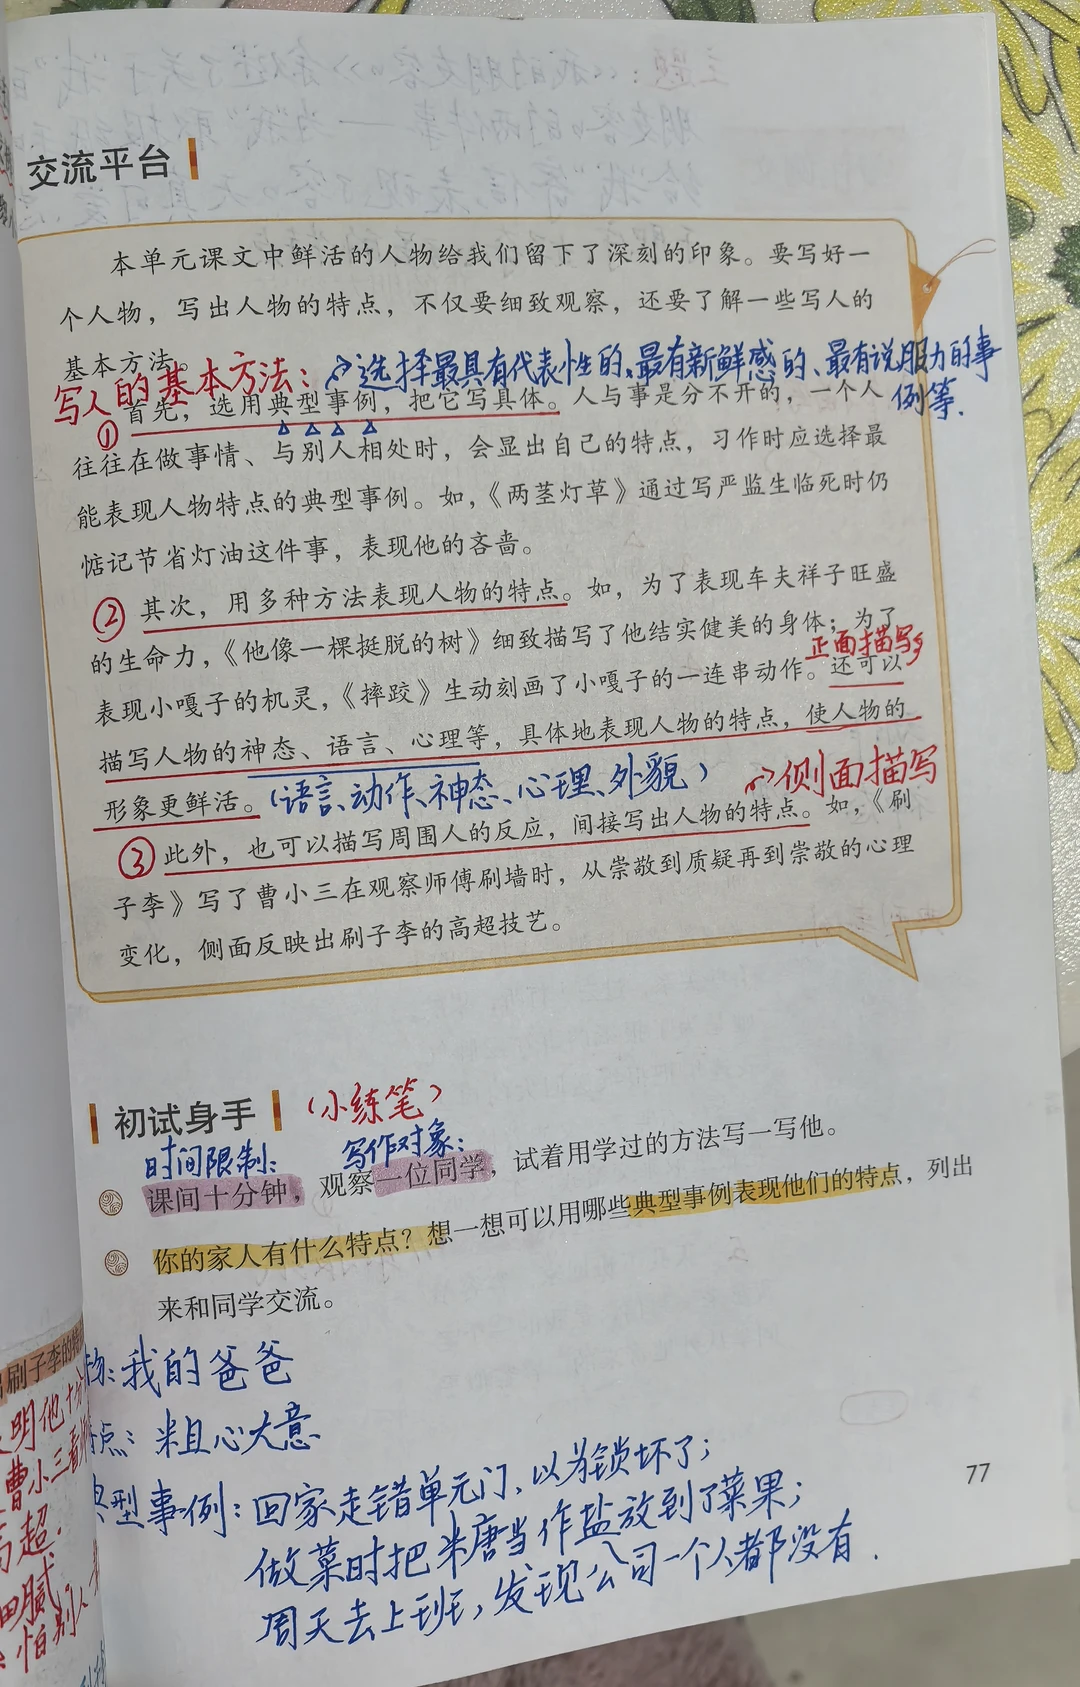 交流平台
本单元课文中鲜活的人物给我们留下了深刻的印象。要写好一
个人物，写出人物的特点，不仅要细致观察，还要了解一些写人的
基本方法。
写人的基本方法：
选择最具有代表性的、最有新鲜感的、最有说服力的事
例等.
① 首先，选用典型事例，把它写具体。人与事是分不开的，一个人
往往在做事情、与别人相处时，会显出自己的特点，习作时应选择最
能表现人物特点的典型事例。如，《两茎灯草》通过写严监生临死时仍
惦记节省灯油这件事，表现他的吝啬。
② 其次，用多种方法表现人物的特点。如，为了表现车夫祥子旺盛
的生命力，《他像一棵挺脱的树》细致描写了他结实健美的身体；为了
正面描写
表现小嘎子的机灵，《摔跤》生动刻画了小嘎子的一连串动作。还可以
描写人物的神态、语言、心理等，具体地表现人物的特点，使人物的
形象更鲜活。
（语言、动作、神态、心理、外貌）
侧面描写
③ 此外，也可以描写周围人的反应，间接写出人物的特点。如，《刷
子李》写了曹小三在观察师傅刷墙时，从崇敬到质疑再到崇敬的心理
变化，侧面反映出刷子李的高超技艺。
初试身手
（小练笔）
时间限制：
写作对象：
课间十分钟，观察一位同学，试着用学过的方法写一写他。
你的家人有什么特点？想一想可以用哪些典型事例表现他们的特点，列出
来和同学交流。
物：我的爸爸
点：粗心大意
型事例：回家走错单元门，以为锁坏了；
做菜时把米唐当作盐放到了菜果；
周天去上班，发现公司一个人都没有.
77
刷子李的特
明他十分
曹小三看
高超.
腻
怕别人